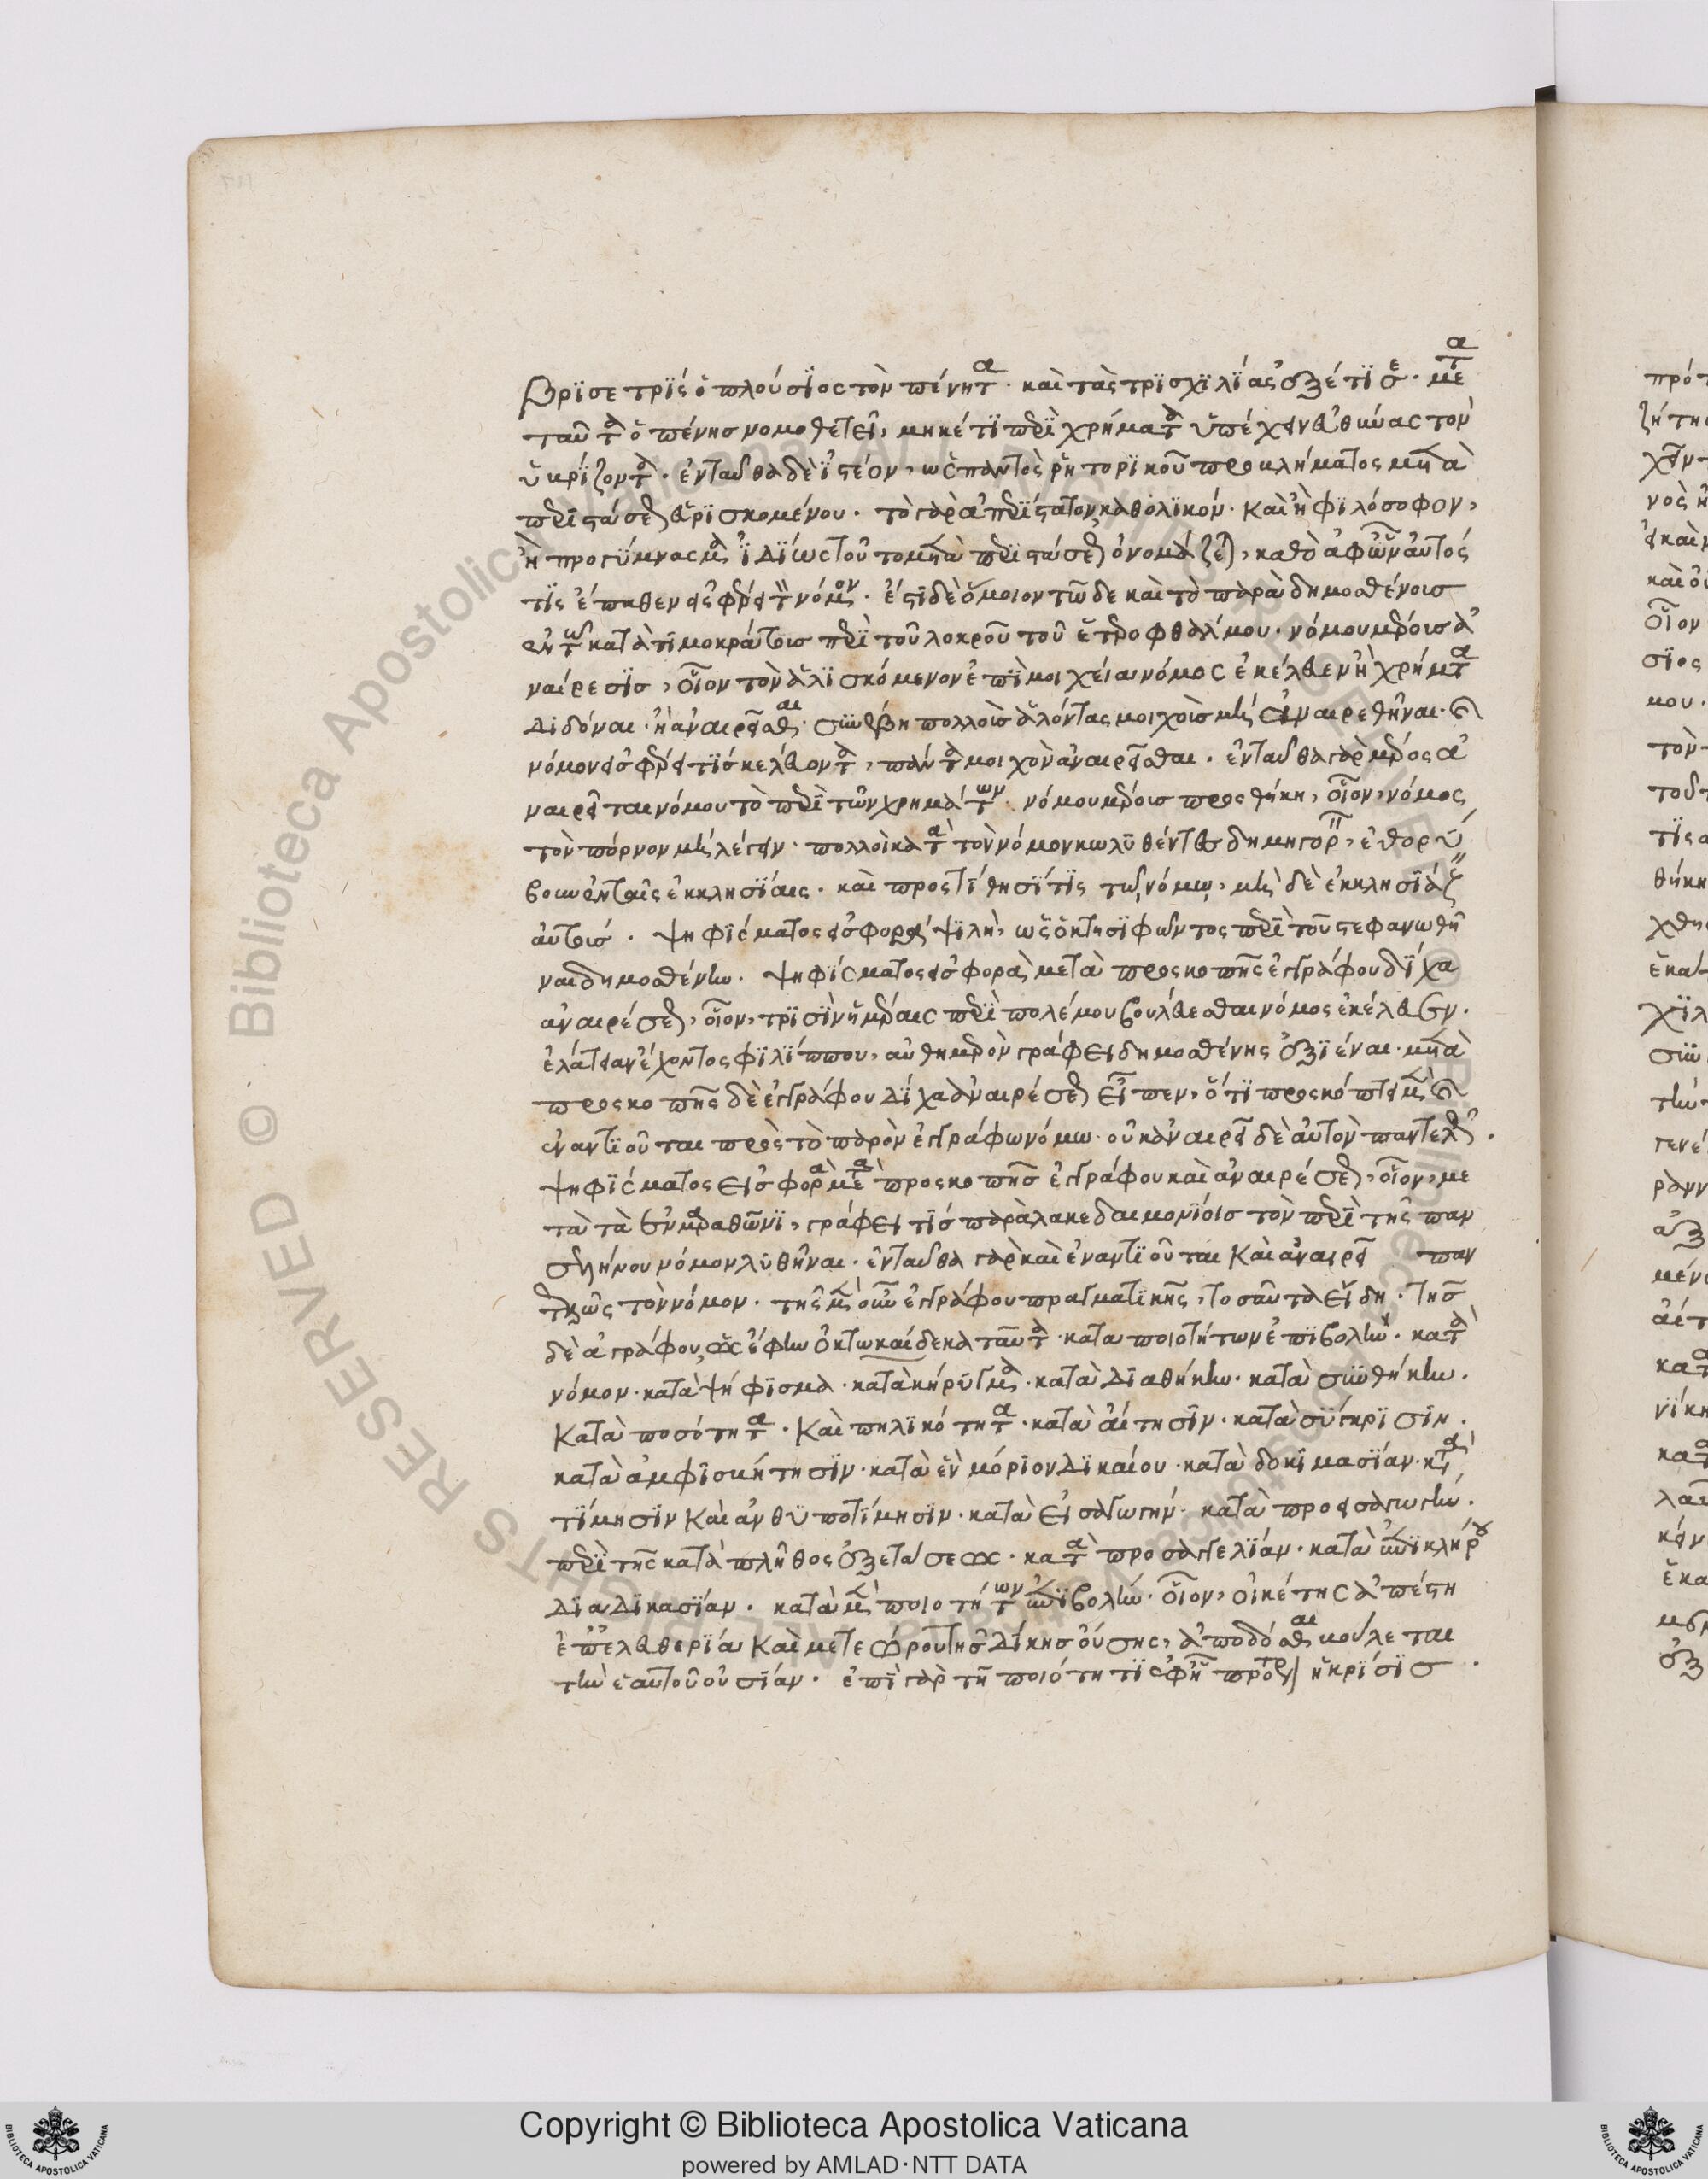 βρϊσε τρϊς ὁ πλούσϊος τὸν πένητα· καὶ τὰς τρϊσχϊλϊας ἐξέτϊσε· μετὰ
ταῦτα ὁ πένησ νομοθετεῖ, μηκέτϊ περὶ χρήματα ὑπέχειν εὐθύνας τὸν
ὑβρίζοντα· ἐνταῦθα δὲ ἰστέον, ὡς παντὸς ῥητορϊκοῦ προβλήματος μετὰ
περιστάσεως εὑρϊσκομένου· τὸ γὰρ ἀπερίστατον καθολϊκόν· καὶ ἢ φϊλόσοφον,
ἢ προγύμνασμα ϊδϊως τοῦτο μετὰ περιστάσεως ὀνομάζεται, καθὸ
τϊς ἔπαθεν εἰσφέρει νόμον· ἔστϊ δὲ ὅμοιον τῶδε καὶ τὸ παρὰ δημοσθένοισ
ἐν τῶ κατὰ τϊμοκράτοισ περὶ τοῦ λοκροῦ τοῦ ἑτεροφθάλμου· νόμου μέροισ ἀ
ναίρεσϊσ, οἷον τὸν ἁλϊσκόμενον ἐπὶ μοιχεία νόμος ἐκέλευεν ἢ χρήματα
διδόναι· ἢ ἀναιρεῖσθαι· συνέβη πολλοὶσ ἁλόντας μοιχοὶσ μὴ ἀναιρεθῆναι·
νόμον εἰσφέρει τϊς κελεύοντα, πάντα μοιχὸν ἀναιρεῖσθαι· ἐνταῦθα γὰρ μέρος ἀ
ναιρεῖται νόμου τὸ περὶ τῶν χρημάτων· νόμου μέροισ προσθήκη, οἷον, νόμος
τὸν πόρνον μὴ λέγειν· πολλοὶ κατὰ τὸν νόμον κωλυθέντες δημηγορεῖν, ἐθορύ
βουν ἐν ταῖς ἐκκλησϊαις· καὶ προστϊθησϊ τϊς τῶ νόμω, μὴ δὲ ἐκκλησϊάζειν
αὐτοισ· ψηφϊσματος εἰσφορὰ ψϊλὴ, ὡς ὁ κτησϊφῶντος περὶ τοῦ στεφανωθῆ
ναι δημοσθένην· ψηφϊσματος εἰσφορὰ μετὰ προσκοπῆς ἐγγράφου δϊχα
ἀναιρέσεως, οἷον, τρϊσὶν ἡμέραις περὶ πολέμου βουλεύεσθαι νόμος ἐκέλευεν·
ἐλάτειαν ἔχοντος φϊλϊππου, αὐθημερὸν γράφει δημοσθένης ἐξϊέναι· μετὰ
προσκοπῆς δὲ ἐγγράφου δϊχα ἀναιρέσεως εἶπεν, ὅτϊ προσκόπτει μὲν
ἐναντϊοῦται πρὸς τὸ παρὸν ἐγγράφω νόμω· οὐκ ἀναιρεῖ δὲ αὐτὸν παντελῶς·
ψηφϊσματος εἰσφορὰ μετὰ προσκοπῆσ ἐγγράφου καὶ ἀναιρέσεως, οἷον, με
τὰ τὰ ἐν μαραθῶνϊ, γράφει τϊς παρὰ λακεδαιμονϊοισ τὸν περὶ τῆς παν
σελήνου νόμον λυθῆναι· ἐνταῦθα γὰρ καὶ ἐναντϊοῦται καὶ ἀναιρεῖ παν
τελῶς τὸν νόμον· τῆς μὲν οὖν ἐγγράφου πραγματϊκῆς, τοσαῦτα εἴδη· τῆσ
δὲ ἀγράφου, ὡς ἔφην ὀκτωκαίδεκα ταῦτα· κατα ποιοτήτων ἐπϊβολὴν· κατὰ
νόμον· κατὰ ψήφϊσμα· κατὰ κήρυγμα· κατὰ δϊαθήκην· κατὰ συνθήκην·
κατὰ ποσότητα· καὶ πηλϊκότητα· κατὰ αἴτησϊν· κατὰ σύγκρϊσϊν·
κατὰ ἀμφϊσβήτησϊν· κατὰ ἓν μόρϊον δϊκαίου· κατὰ δοκϊμασϊαν· κατὰ
τϊμησϊν καὶ ἀνθυποτϊμησϊν· κατὰ εἰσαγωγήν· κατὰ προεισαγωγὴν·
περὶ τῆς κατὰ πλῆθος ἐξετάσεως· κατὰ προσαγγελϊαν· κατὰ ἐπϊκλήρου
δϊαδϊκασϊαν· κατὰ μὲν ποιοτήτων ἐπϊβολὴν· οἷον, οἰκέτης ἀπέστη
ἐπ' ἐλευθερϊα καὶ μετεώρου τῆς δϊκησ οὔσης, ἀποδόσθαι βούλεται
τὴν ἑαυτοῦ οὐσϊαν· ἐπὶ γὰρ τῆ ποιότητϊ ἡ κρϊσϊσ·
Copyright © Biblioteca Apostolica Vaticana
powered by AMLAD·NTT DATA